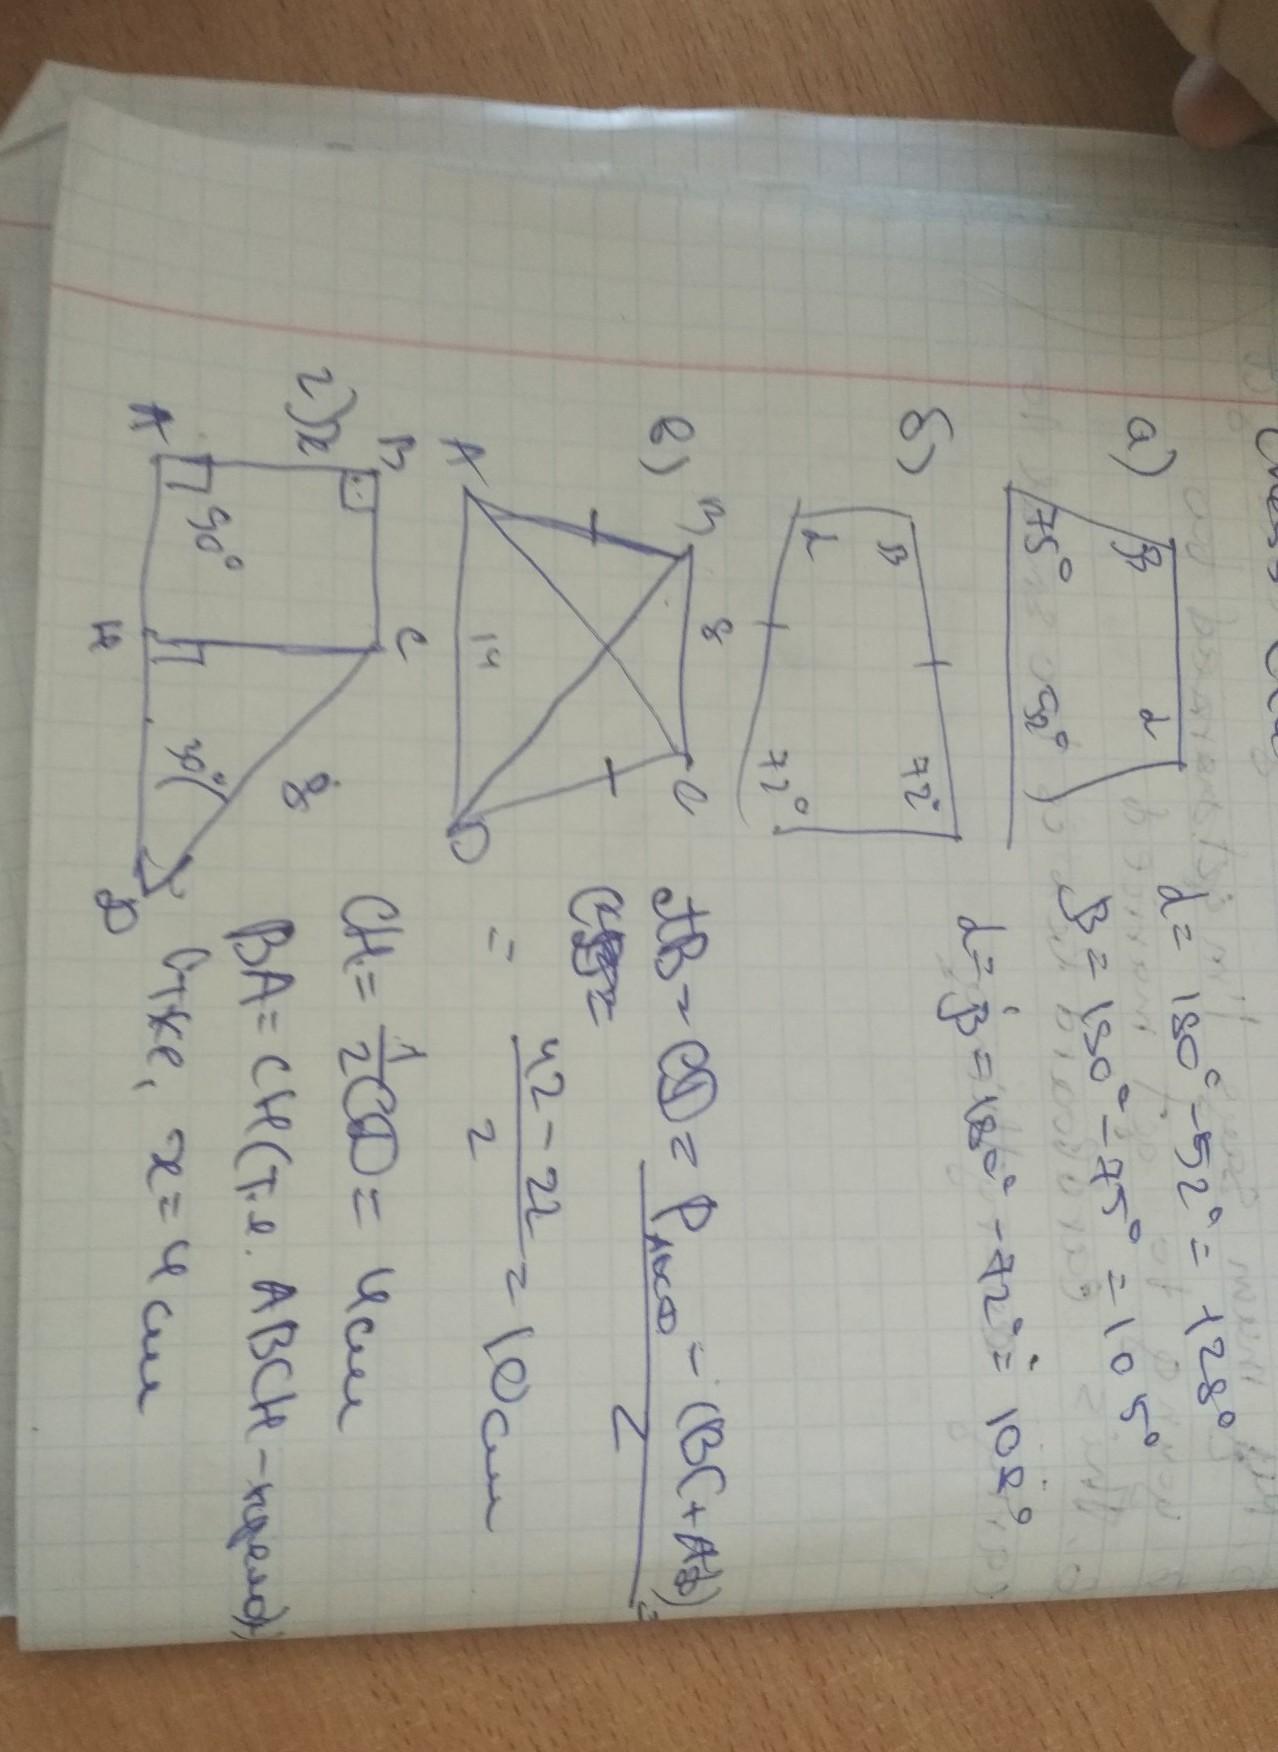 а)
β
α
75°
52°
α = 180° - 52° = 128°
β = 180° - 75° = 105°
б)
β
72°
α
72°
α = β = 180° - 72° = 108°
в)
B
8
C
A
14
D
AB = CD = P ABCD - (BC + AD) =
2
= 42 - 22 = 10 см
2
г) x
B
C
8
90°
30°
A
H
D
CH = 1/2 CD = 4 см
BA = CH (т.е. ABCH - прямо)
x = 4 см